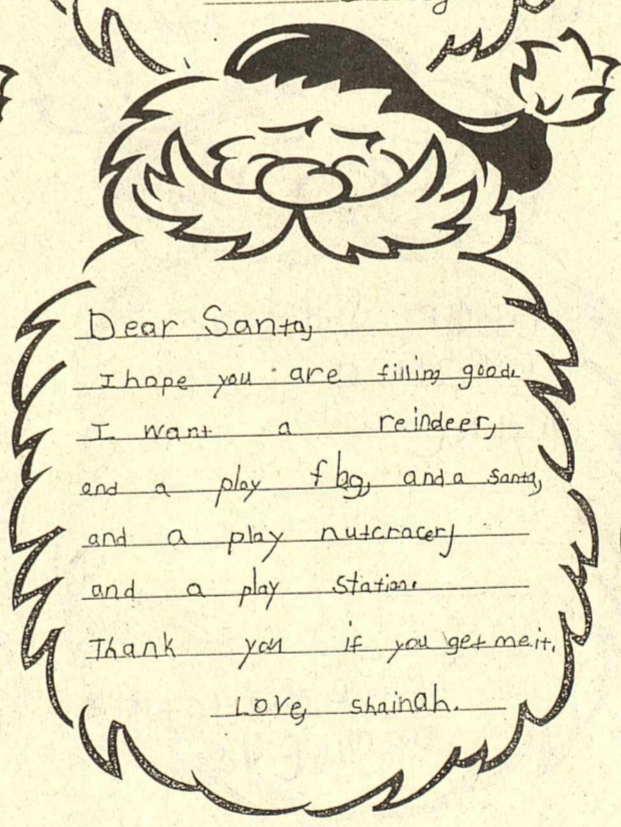 Dear Santa,
I hope you are fillim good.
I want a reindeer,
and a play flag, and a Santa,
and a play nutcracer,
and a play station.
Thank you if you get me it.
Love, Shainah.